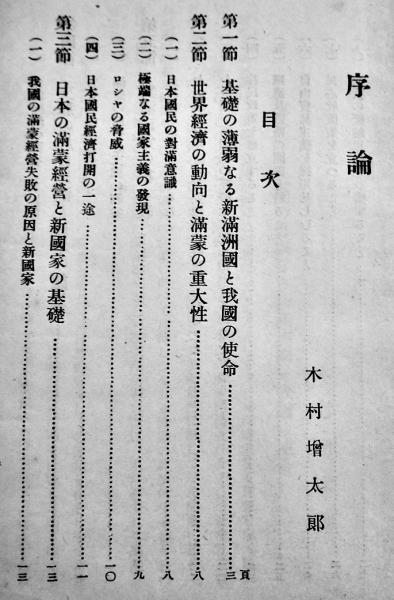 序論
木村增太郞
目次
第一節 基礎の薄弱なる新滿洲國と我國の使命……………三頁
第二節 世界經濟の動向と滿蒙の重大性……………八
(一) 日本國民の對滿意識……………八
(二) 極端なる國家主義の發現……………九
(三) ロシヤの脅威……………一〇
(四) 日本國民經濟打開の一途……………一一
第三節 日本の滿蒙經營と新國家の基礎……………一三
(一) 我國の滿蒙經營失敗の原因と新國家……………一三